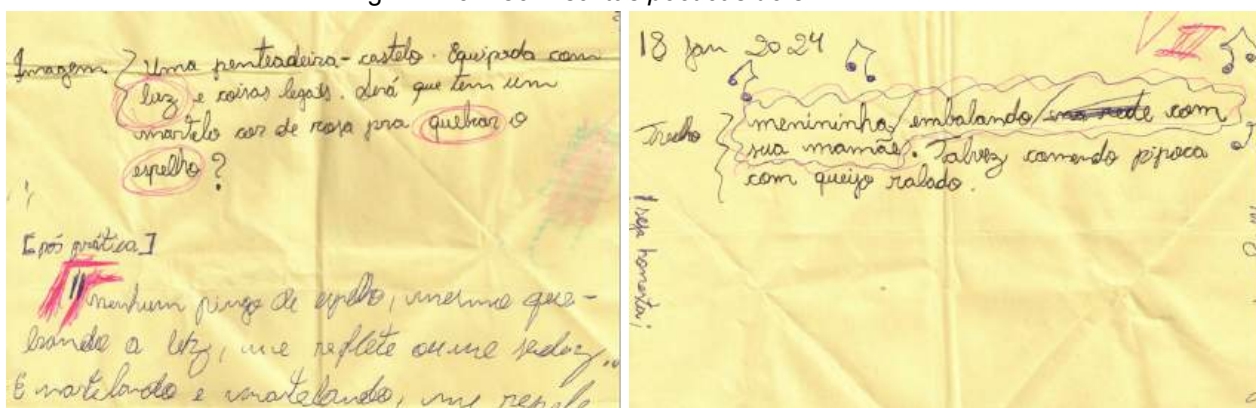 Imagem { Uma penteadeira-castelo. Equipada com
luz e coisas legais. Será que tem um
martelo cor de rosa pra quebrar o
espelho?
[pós prática]
"nenhum pingo de espelho, mesmo que-
brando a luz, me reflete ou me seduz...
E martelando e martelando, me repele
18 jan 2024
VIII
Trecho { menininha / embalando / com
sua mamãe. Talvez comendo pipoca
com queijo ralado.
seja honesta;